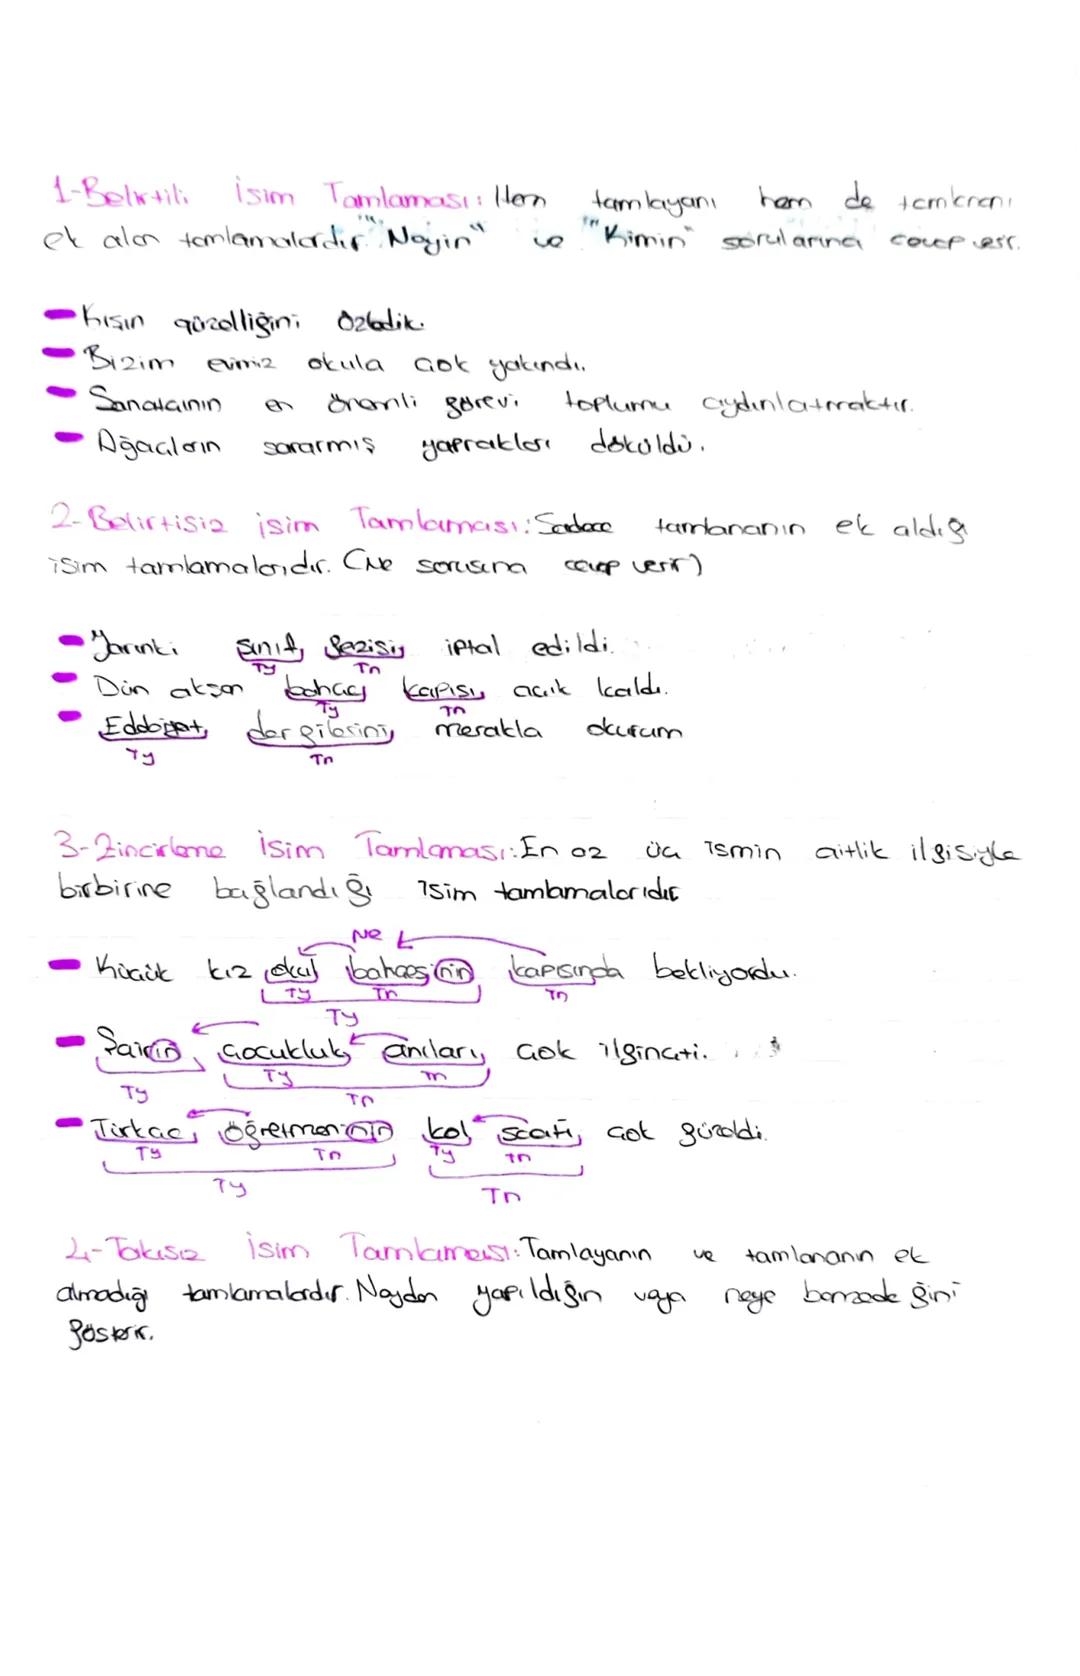 1-Belirtili İsim Tamlaması: Hem tamlayanı hem de tamlananı
ek alan tamlamalardır. "Neyin" ve "Kimin" sorularına cevap verir.
Kışın güzelliğini özledik.
Bizim evimiz okula çok yakındı.
Sanatçının en önemli görevi toplumu aydınlatmaktır.
Ağaçların sararmış yaprakları döküldü.
2-Belirtisiz isim Tamlaması: Sadece tamlananın ek aldığı
isim tamlamalarıdır. (Ne sorusuna cevap verir)
Yarınki sınıf gezisi iptal edildi.
Ty Tn
Dün akşam bahçe kapısı açık kaldı.
Ty Tn
Edebiyat dergilerini merakla okurum
Ty Tn
3-Zincirleme İsim Tamlaması: En az üç ismin aitlik ilgisiyle
birbirine bağlandığı isim tamlamalarıdır
Ne
Küçük kız okul bahçesinin kapısında bekliyordu.
Ty Tn Tn
Ty
Şairin çocukluk anıları çok ilginçti.
Ty Tn
Ty Tn
Türkçe öğretmeninin kol saati çok güzeldi.
Ty Tn Ty Tn
Ty Tn
4-Takısız İsim Tamlaması: Tamlayanın ve tamlananın ek
almadığı tamlamalardır. Neyden yapıldığın veya neye benzedeğini
gösterir.